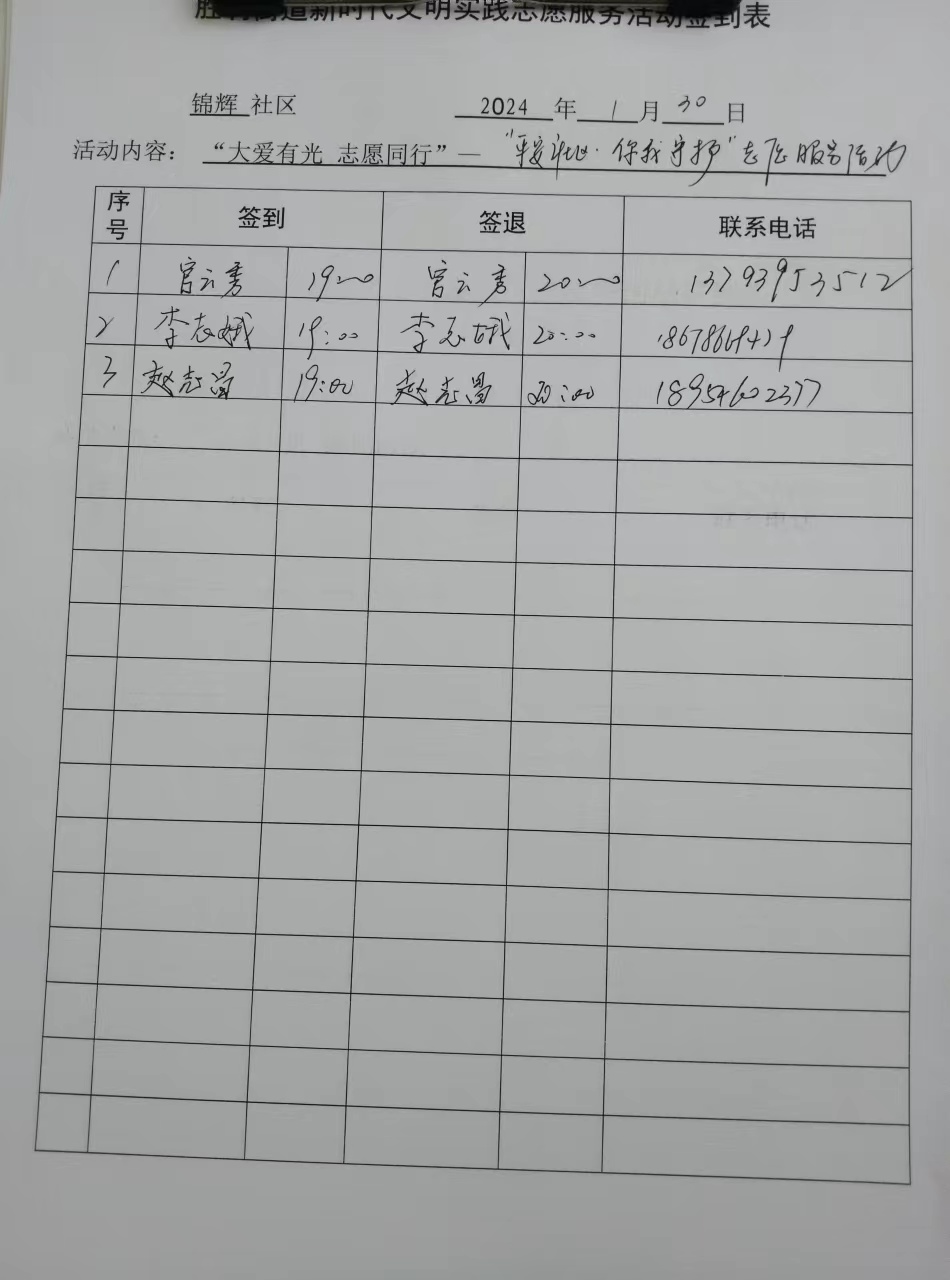 胜利街道新时代文明实践志愿服务活动签到表
锦辉 社区 2024 年 1 月 30 日
活动内容： “大爱有光 志愿同行”— “平安社区·你我守护”志愿服务活动
序号 签到 签退 联系电话
1 官云秀 19:00 官云秀 20:00 13793953512
2 李志娥 19:00 李志娥 20:00
3 赵志昌 19:00 赵志昌 20:00 18954602377